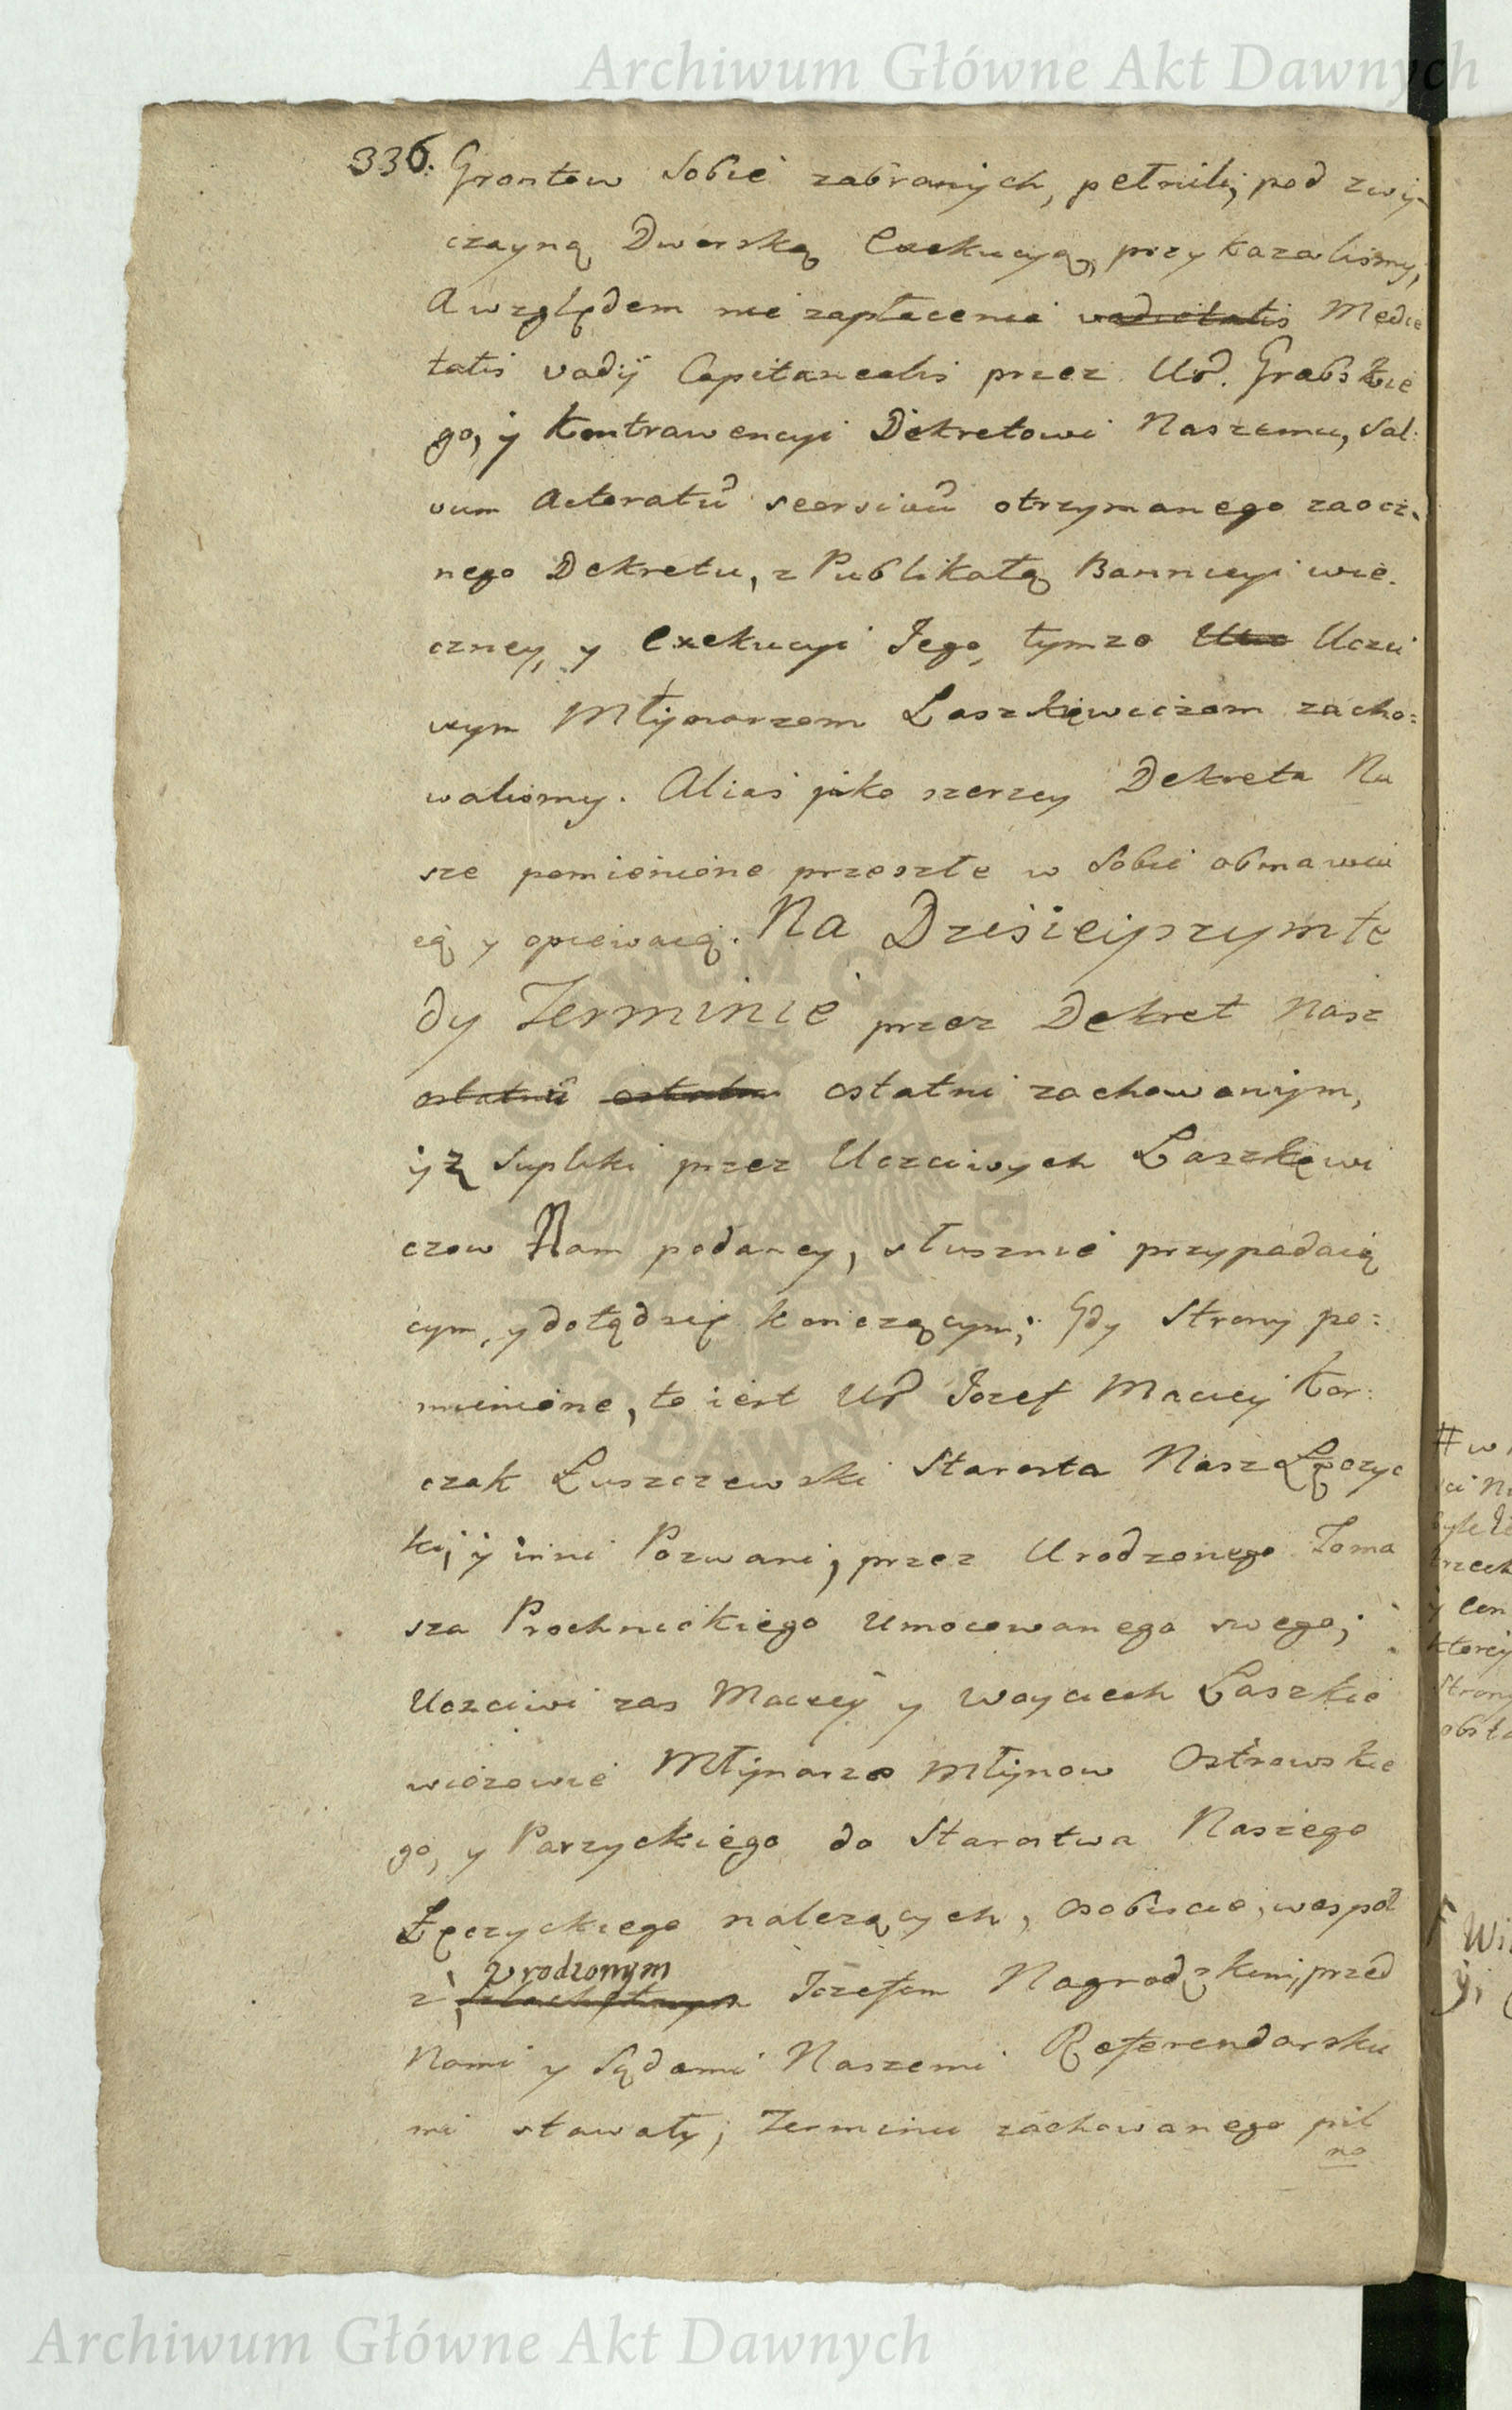 Archiwum Główne Akt Dawnych
336. Grontow Sobie zabranych, pełnili, pod zwy-
czayną Dworską Exekucyą, przykazalismy,
A względem nie zapłacenia vadietatis Medie
tatis vadij Capitanealis przez Ur. Grabskie
go, y Kontrawencyi Dekretowi Naszemu, Sal:
vum Actoratu seorsivu otrzymanego zaocz.
nego Dekretu, z Publikatą Bannicyi wie.
czney, y Exekucyi Jego, tymze Ucz Uczci
wym Młynarzom Laszkiewiczom zacho:
walismy. Alias jako szerzey Dekreta Na
sze pomienione przeszłe w Sobie obmawia
ią y opiewaią. Na Dzisieiszym te
dy Terminie przez Dekret Nasz
ostatni ostatni ostatni zachowanym,
y z Supliki przez Uczciwych Laszkewi
czow Nam podaney, słusznie przypadaią
cym, y dotąd się konczącym; Gdy Strony po:
mienione, to iest Ur Jozef Maciey Kor:
czak Łuszczewski Starosta Nasz Łęczyc
ki, y inni Pozwani, przez Urodzonego Toma
sza Prochnickiego Umocowanego swego;
Uczciwi zas Maciey y Woyciech Laszkie
wiczowie Młynarze Młynow Ostrowskie
go, y Parzyckiego do Starostwa Naszego
Łęczyckiego nalezących, Osobiscie, wespoł
Urodzonym
z Szlachetnym Jozefem Nagrodzkim, przed
Nami y Sądami Naszemi Referendarsku
mi stawały; Terminu zachowanego pil
no
Archiwum Główne Akt Dawnych